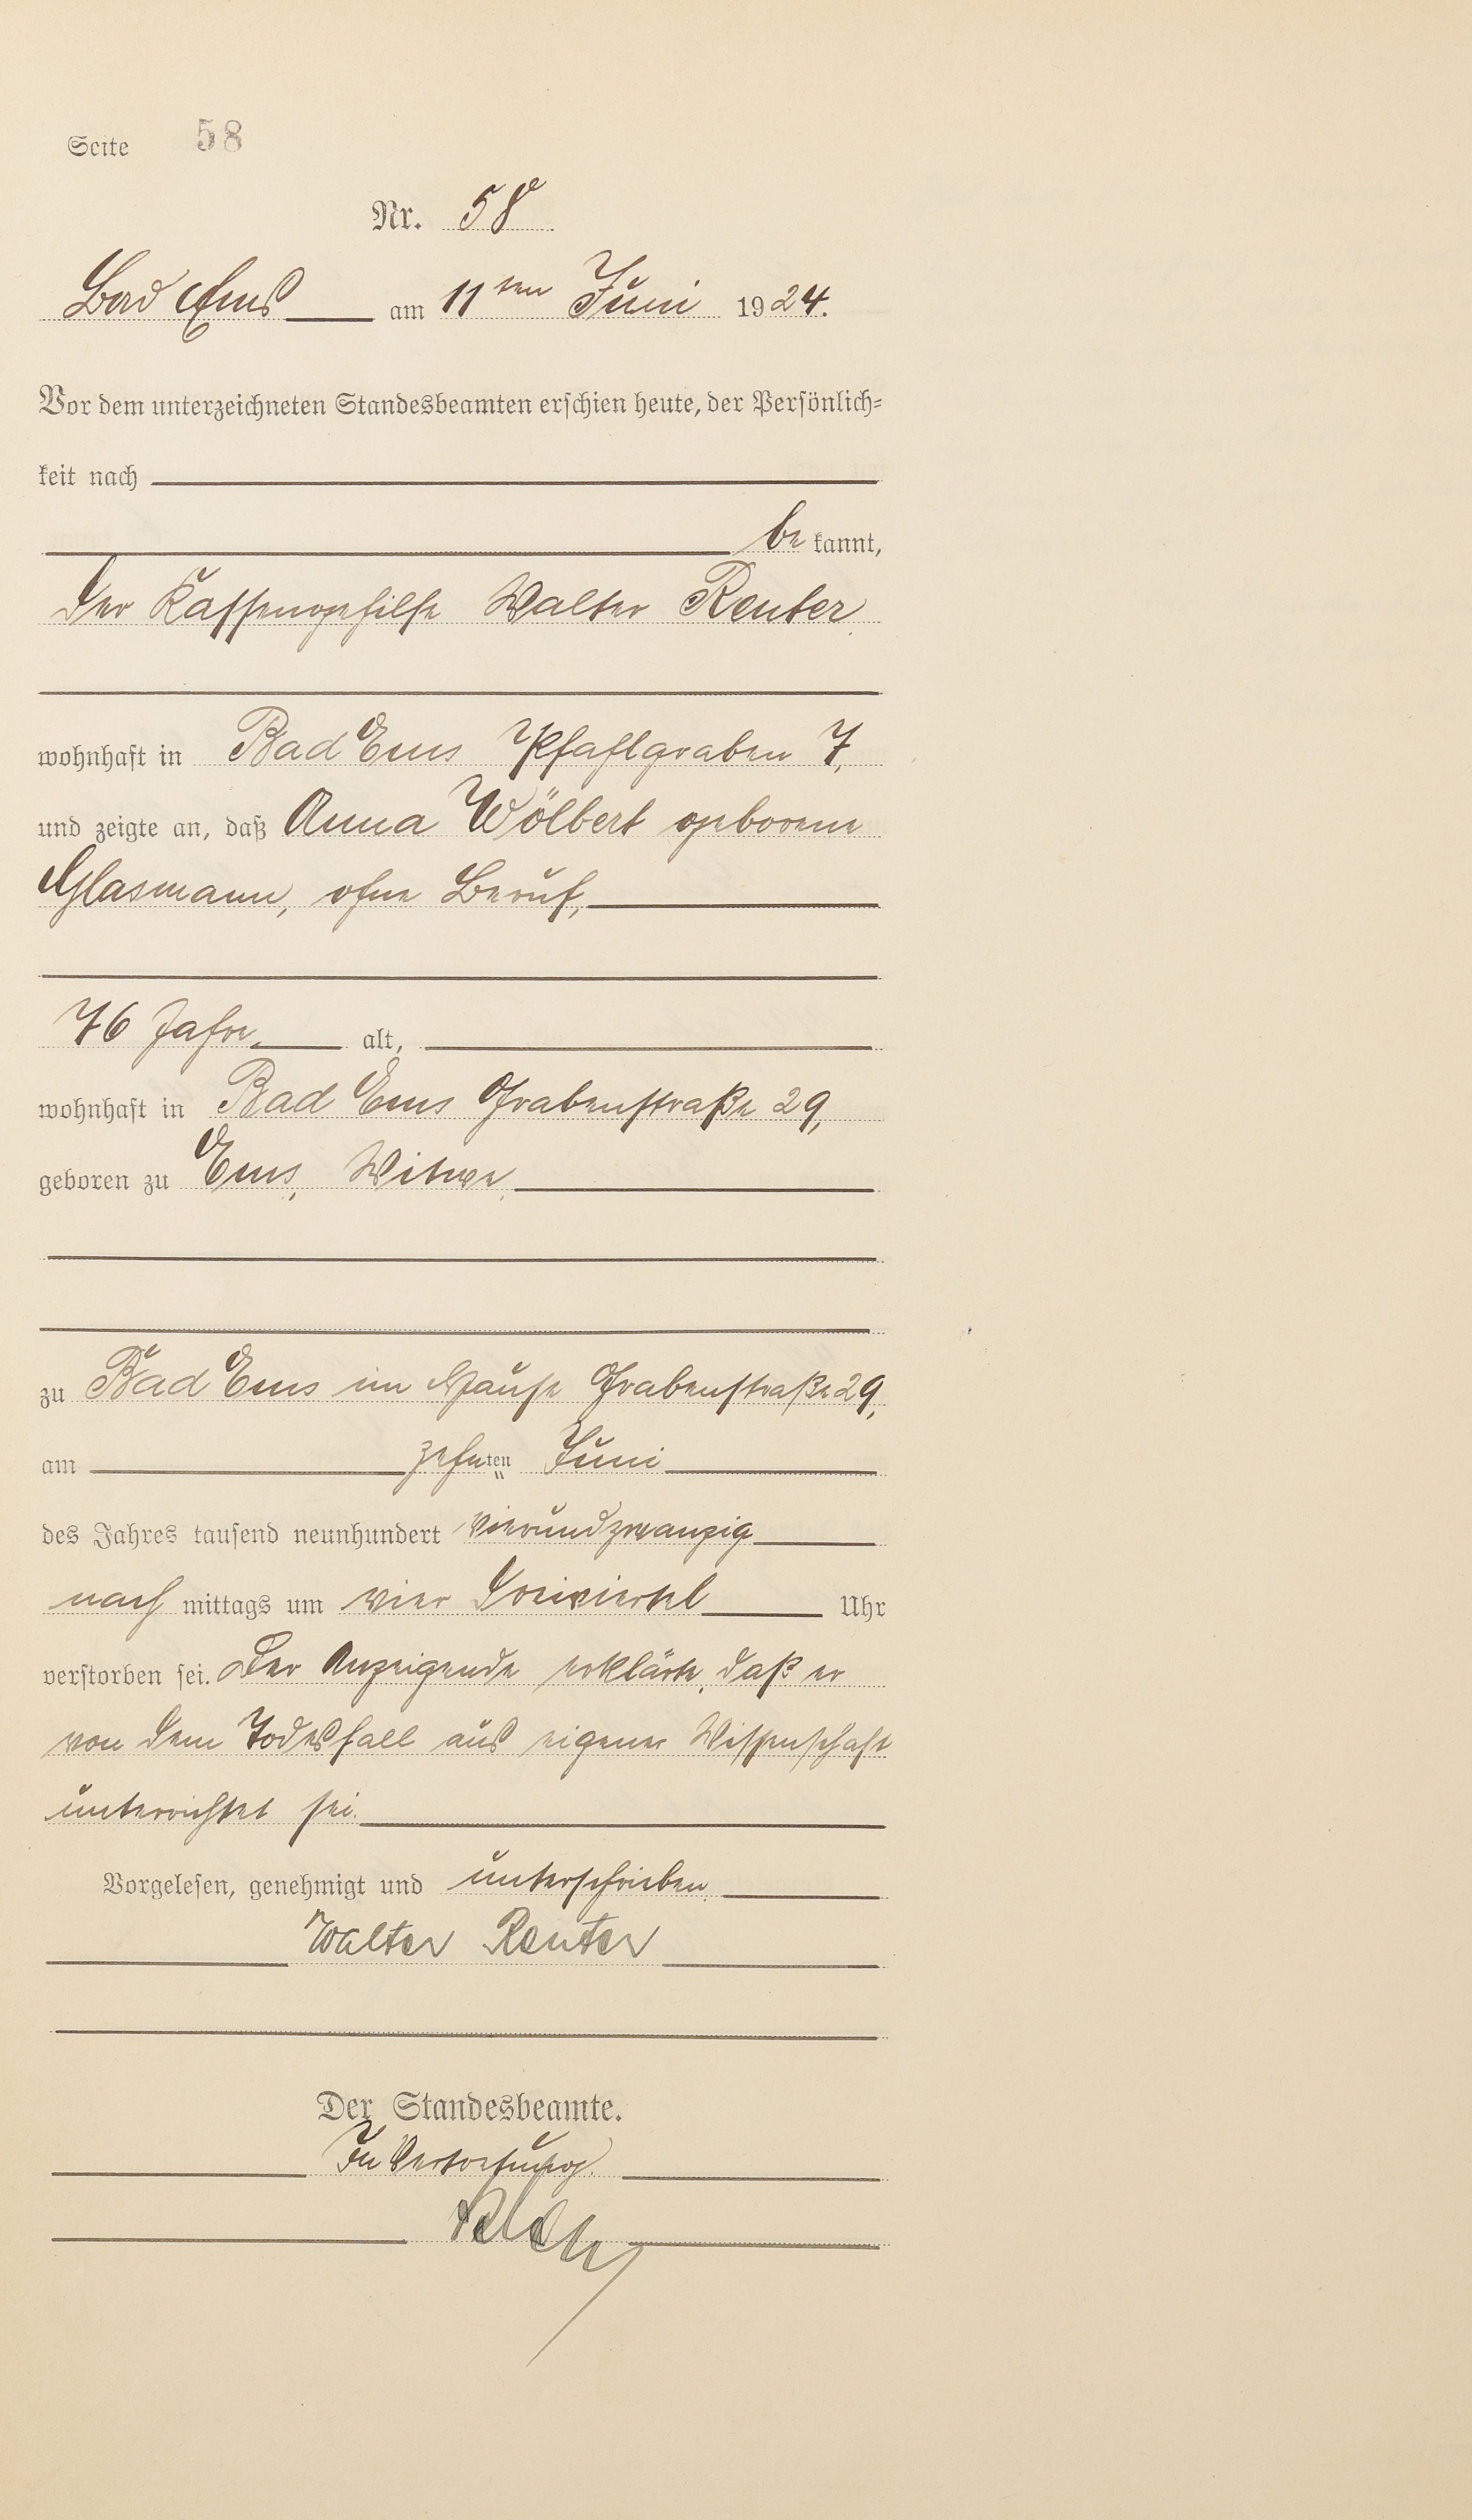 Seite 58
Nr. 58
Bad Ems am 11ten Juni 1924.
Vor dem unterzeichneten Standesbeamten erschien heute, der Persönlich-
keit nach
be kannt,
der Kassengehilfe Walter Reuter
wohnhaft in Bad Ems Pfahlgraben 7,
und zeigte an, daß Anna Wölbert geborene
Glasmann, ohne Beruf,
76 Jahre alt,
wohnhaft in Bad Ems Grabenstraße 29,
geboren zu Ems, Witwe,
zu Bad Ems im Hause Grabenstraße 29,
am zehnten Juni
des Jahres tausend neunhundert vierundzwanzig
nach mittags um vier dreiviertel Uhr
verstorben sei. Der Anzeigende erklärte, daß er
von dem Todesfall aus eigener Wissenschaft
unterrichtet sei.
Vorgelesen, genehmigt und unterschrieben
Walter Reuter
Der Standesbeamte.
In Vertretung.